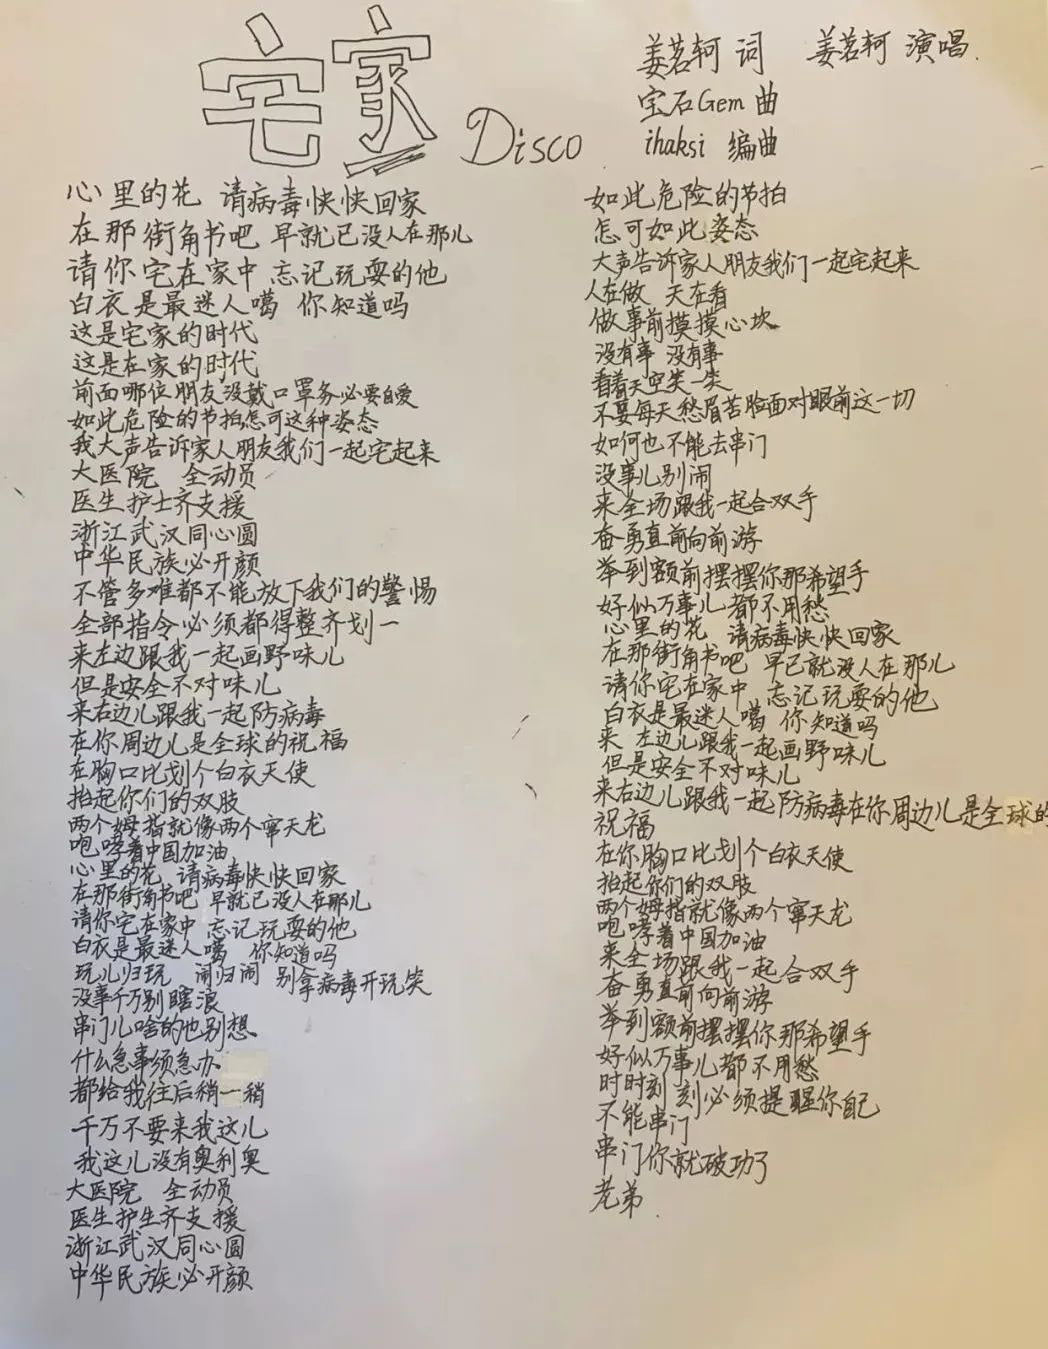 宅家 Disco
姜茗轲 词 姜茗轲 演唱.
宝石Gem 曲
ihaksi 编曲
心里的花 请病毒快快回家
在那街角书吧 早就已没人在那儿
请你宅在家中 忘记玩耍的他
白衣是最迷人噶 你知道吗
这是宅家的时代
这是在家的时代
前面哪位朋友没戴口罩务必要自爱
如此危险的节拍怎可这种姿态
我大声告诉家人朋友我们一起宅起来
大医院 全动员
医生护士齐支援
浙江武汉同心圆
中华民族必开颜
不管多难都不能放下我们的警惕
全部指令必须都得整齐划一
来左边跟我一起画野味儿
但是安全不对味儿
来右边儿跟我一起防病毒
在你周边儿是全球的祝福
在胸口比划个白衣天使
抬起你们的双肢
两个姆指就像两个窜天龙
咆哮着中国加油
心里的花 请病毒快快回家
在那街角书吧 早就已没人在那儿
请你宅在家中 忘记玩耍的他
白衣是最迷人噶 你知道吗
玩儿归玩 闹归闹 别拿病毒开玩笑
没事千万别瞎浪
串门儿啥的也别想
什么急事须急办
都给我往后稍一稍
千万不要来我这儿
我这儿没有奥利奥
大医院 全动员
医生护生齐支援
浙江武汉同心圆
中华民族必开颜
如此危险的节拍
怎可如此姿态
大声告诉家人朋友我们一起宅起来
人在做 天在看
做事前摸摸心坎
没有事 没有事
看着天空笑一笑
不要每天愁眉苦脸面对眼前这一切
如何也不能去串门
没事儿别闹
来全场跟我一起合双手
奋勇直前向前游
举到额前摆摆你那希望手
好似万事儿都不用愁
心里的花 请病毒快快回家
在那街角书吧 早已就没人在那儿
请你宅在家中 忘记玩耍的他
白衣是最迷人噶 你知道吗
来 左边儿跟我一起画野味儿
但是安全不对味儿
来右边儿跟我一起防病毒在你周边儿是全球的
祝福
在你胸口比划个白衣天使
抬起你们的双肢
两个姆指就像两个窜天龙
咆哮着中国加油
来全场跟我一起合双手
奋勇直前向前游
举到额前摆摆你那希望手
好似万事儿都不用愁
时时刻刻必须提醒你自己
不能串门
串门你就破功了
老弟